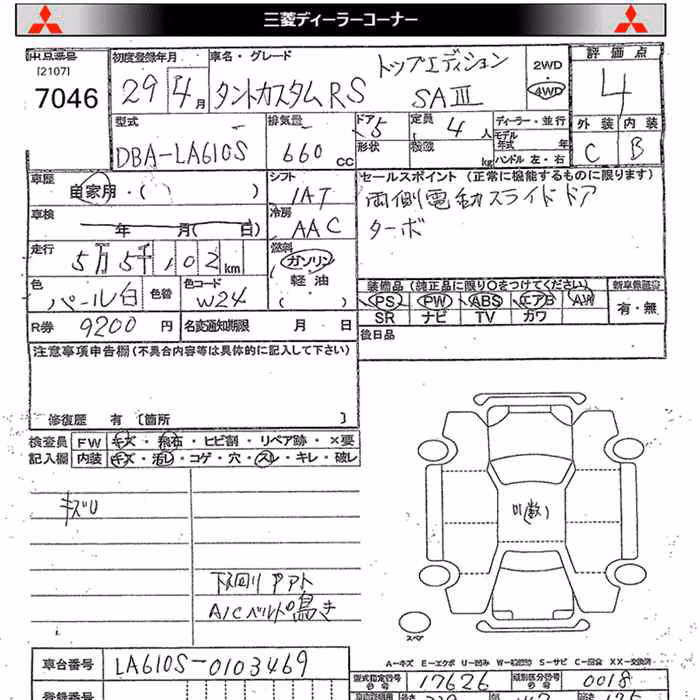 三菱ディーラーコーナー
出品番号
[2107]
7046
初度登録年月
29年4月
車名・グレード
タントカスタムRS トップエディション SAⅢ
2WD
4WD
評価点
4
外装 内装
C B
型式
DBA-LA610S
排気量
660cc
ドア
5
形状
定員
4人
積載
kg
ディーラー・並行
モデル年式 年
ハンドル 左・右
車歴
自家用・( )
シフト
IAT
セールスポイント (正常に機能するものに限ります)
両側電動スライドドア
ターボ
車検
年 月( 日)
冷房
AAC
走行
5万5千102km
燃料
ガソリン
軽油
色
パール白
色替
色コード
W24
装備品 (純正品に限り○をつけてください)
PS PW ABS エアB AW
SR ナビ TV カワ
新車保証書
有・無
R券 9200円
名変通知期限 月 日
後日品
注意事項申告欄 (不具合内容等は具体的に記入して下さい)
修復歴 有 [箇所 ]
検査員 FW キズ・飛石・ヒビ割・リペア跡・×要
記入欄 内装 キズ・汚レ・コゲ・穴・スレ・キレ・破レ
キズU
下回りPアト
A/Cベルト鳴き
スペア
A−キズ E−エクボ U−凹み S−サビ C−腐食 XX−交換済
車台番号 LA610S-0103469
型式指定番号 17626
類別区分番号 0018
登録番号